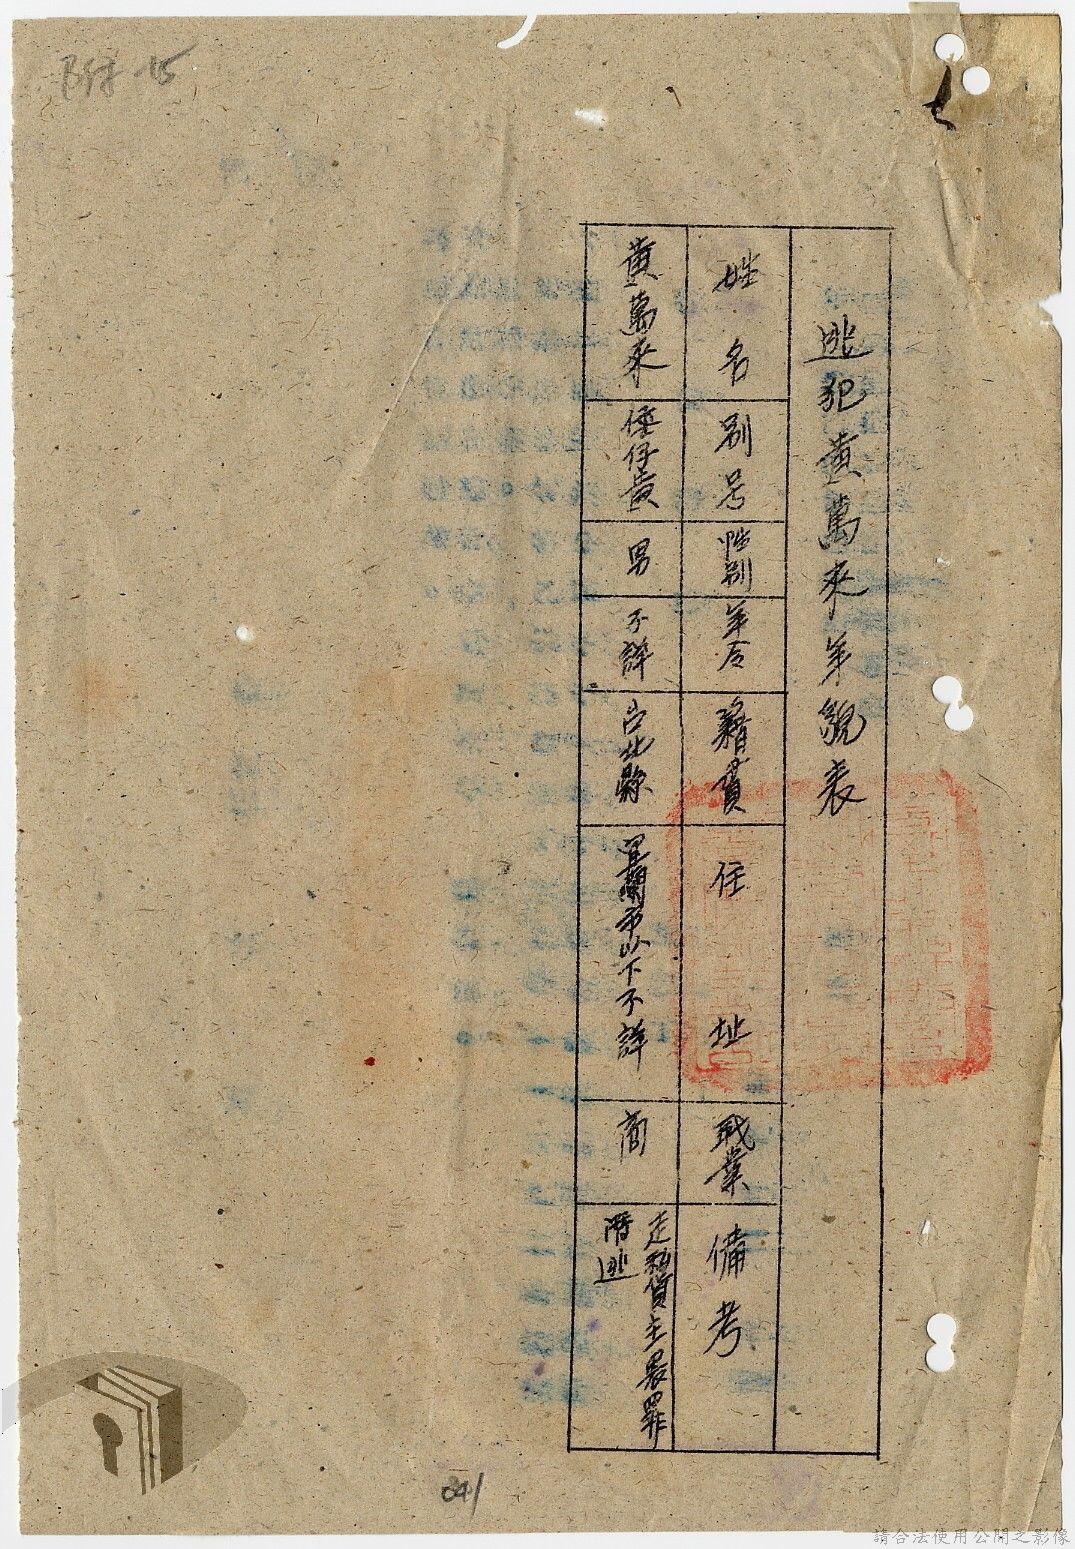 附 15
七
逃犯黄萬來年貌表
姓名
別号
性別
年令
籍貫
住址
职業
備考
黄萬來
仔黄
男
不詳
台北縣
宜蘭市以下不詳
商
走私貨主畏罪
潛逃
041
請合法使用公開之影像